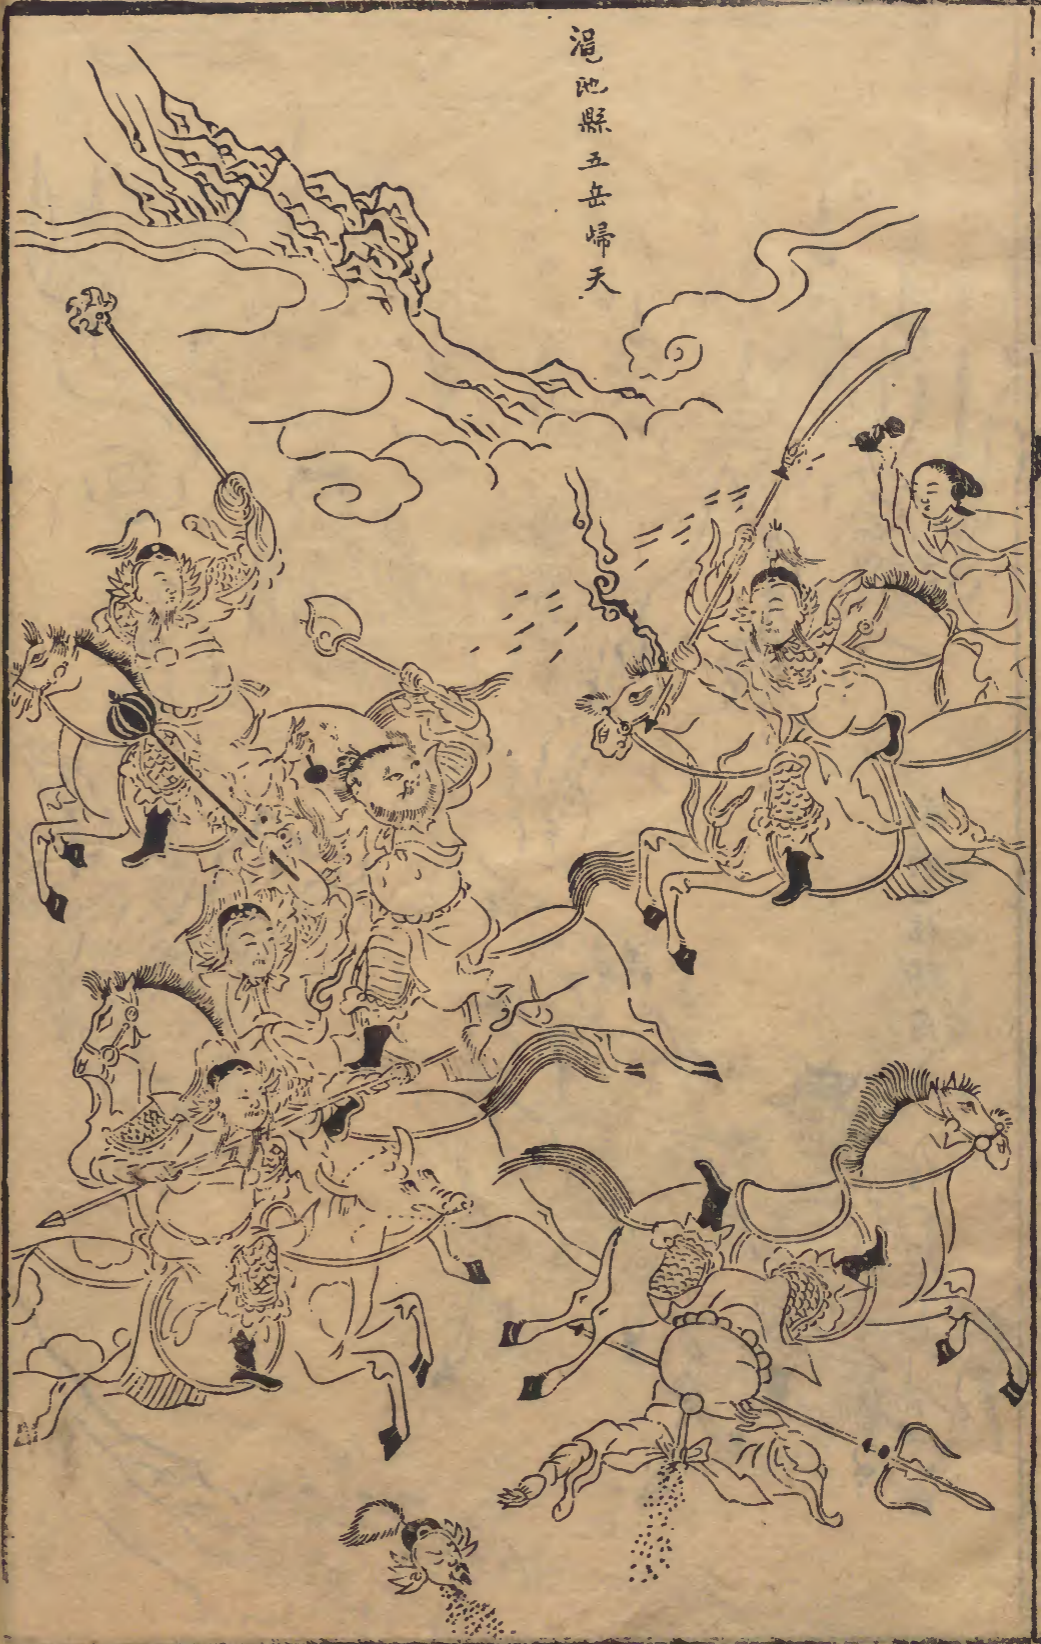 澠池縣五岳歸天